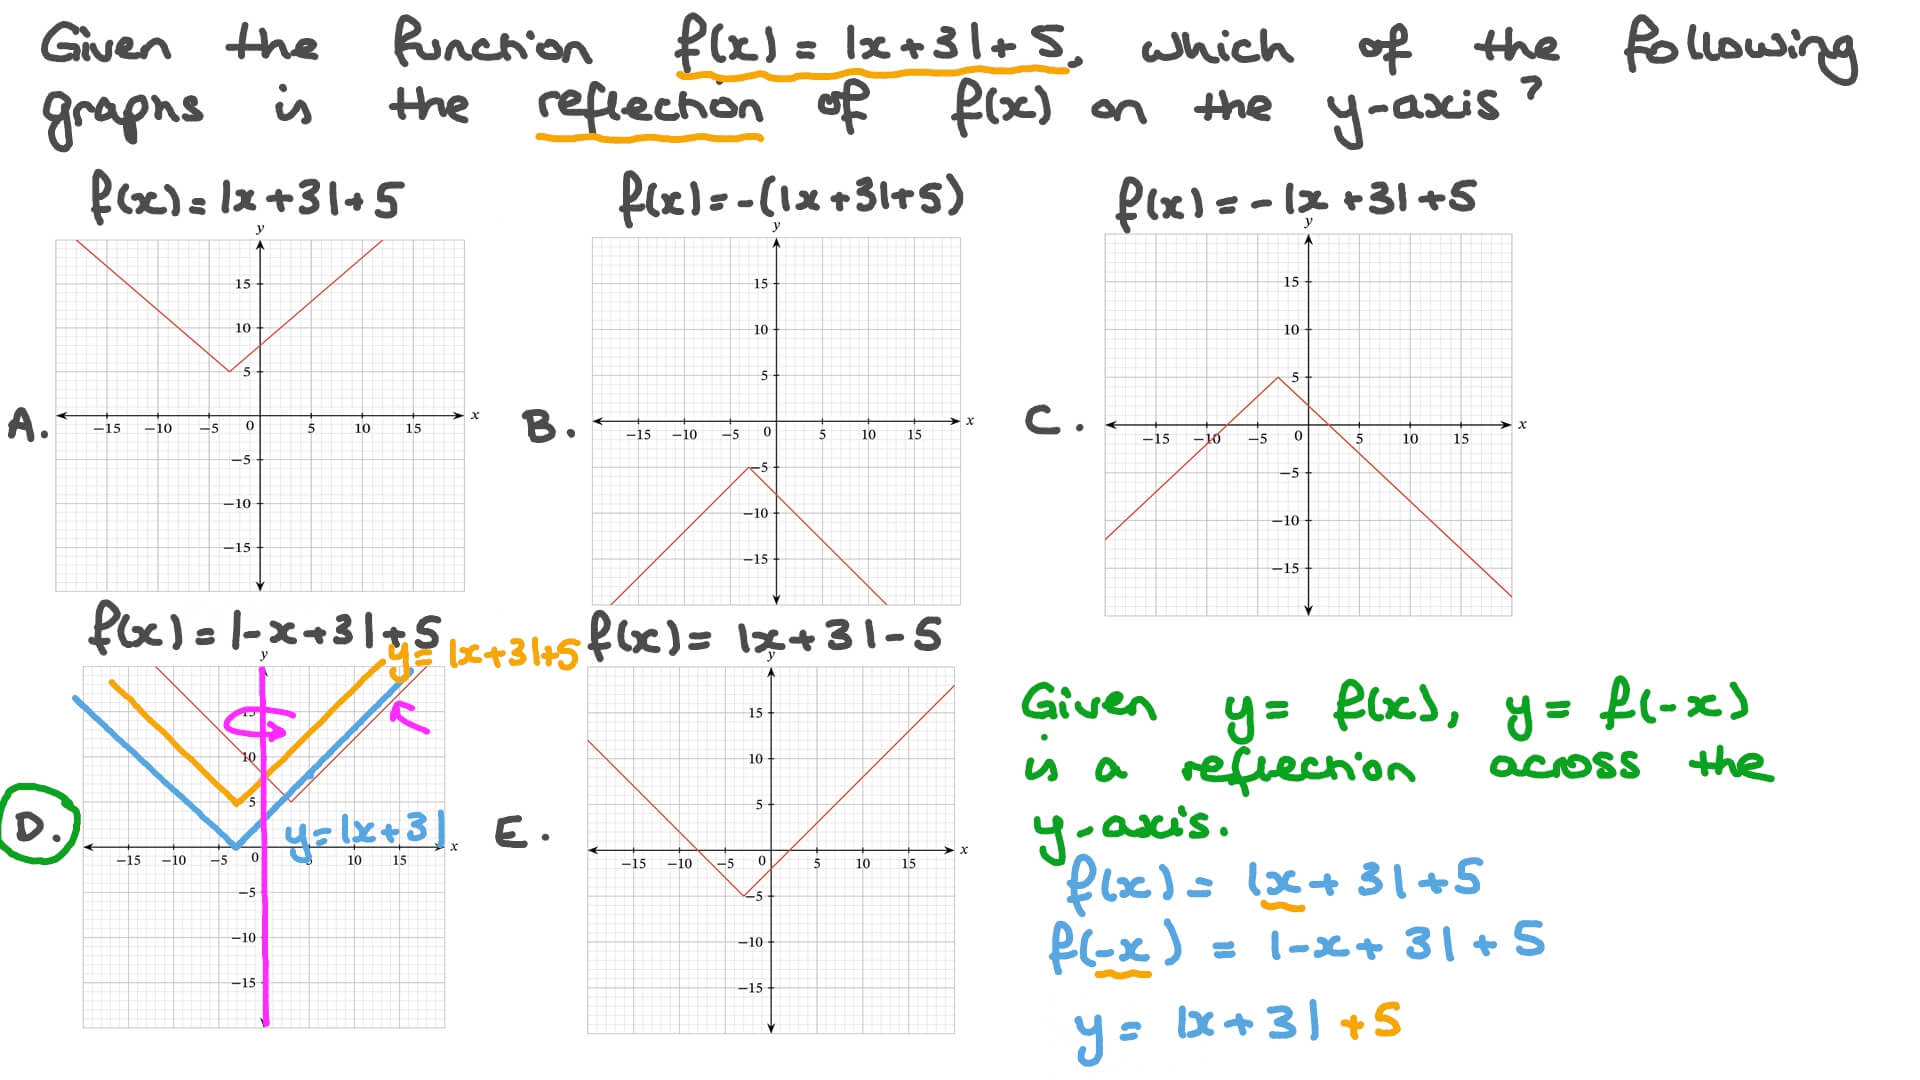 Given the function f(x) = |x+3|+5, which of the following
graphs is the reflection of f(x) on the y-axis?
f(x) = |x+3|+5
f(x) = -(|x+3|+5)
f(x) = -|x+3|+5
A.
y
15
10
5
−15 −10 −5 0 5 10 15 x
−5
−10
−15
B.
y
15
10
5
−15 −10 −5 0 5 10 15 x
−5
−10
−15
C.
y
15
10
5
−15 −10 −5 0 5 10 15 x
−5
−10
−15
f(x) = |-x+3|+5
y = |x+3|+5
f(x) = |x+3|-5
D.
y
15
10
5
y = |x+3|
−15 −10 −5 0 5 10 15 x
−5
−10
−15
E.
y
15
10
5
−15 −10 −5 0 5 10 15 x
−5
−10
−15
Given y = f(x), y = f(-x)
is a reflection across the
y-axis.
f(x) = |x+3|+5
f(-x) = |-x+3|+5
y = |x+3| +5